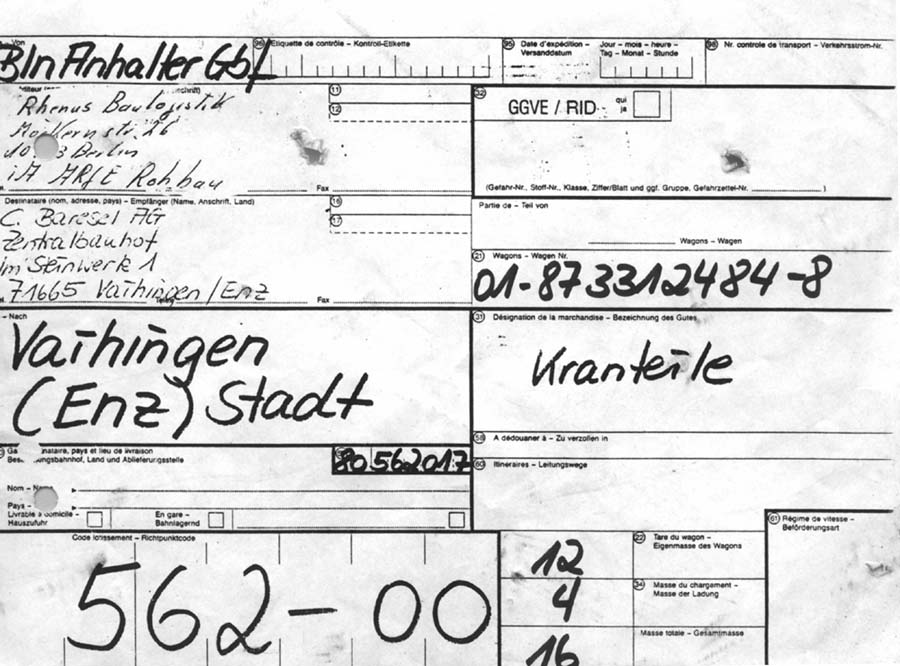 Von
Bln Anhalter Gbf
96 Etiquette de contrôle – Kontroll-Etikette
95 Date d'expédition – Jour – mois – heure –
Versanddatum Tag – Monat – Stunde
98 Nr. controle de transport – Verkehrsstrom-Nr.
Rhenus Baulogistik
Möckernstr. 26
Berlin
iA ARGE Rohbau
Fax
11
12
32
GGVE / RID
qui
ja
(Gefahr-Nr., Stoff-Nr., Klasse, Ziffer/Blatt und ggf. Gruppe, Gefahrzettel-Nr. )
Destinataire (nom, adresse, pays) – Empfänger (Name, Anschrift, Land)
C. Baresel AG
Zentralbauhof
Im Steinwerk 1
71665 Vaihingen/Enz
Fax
16
17
Partie de – Teil von
Wagons – Wagen
21 Wagons – Wagen Nr.
01-873312484-8
– Nach
Vaihingen
(Enz) Stadt
31 Désignation de la marchandise – Bezeichnung des Gutes
Kranteile
58 A dédouaner à – Zu verzollen in
60 Itineraires – Leitungswege
nataire, pays et lieu de livraison
ungsbahnhof, Land und Ablieferungsstelle
80562017
Nom –
Pays –
Livrable à domicile –
Hauszufuhr
En gare –
Bahnlagernd
Code lotissement – Richtpunktcode
562-00
12
22 Tare du wagon –
Eigenmasse des Wagons
4
34 Masse du chargement –
Masse der Ladung
16
Masse totale – Gesamtmasse
61 Régime de vitesse –
Beförderungsart